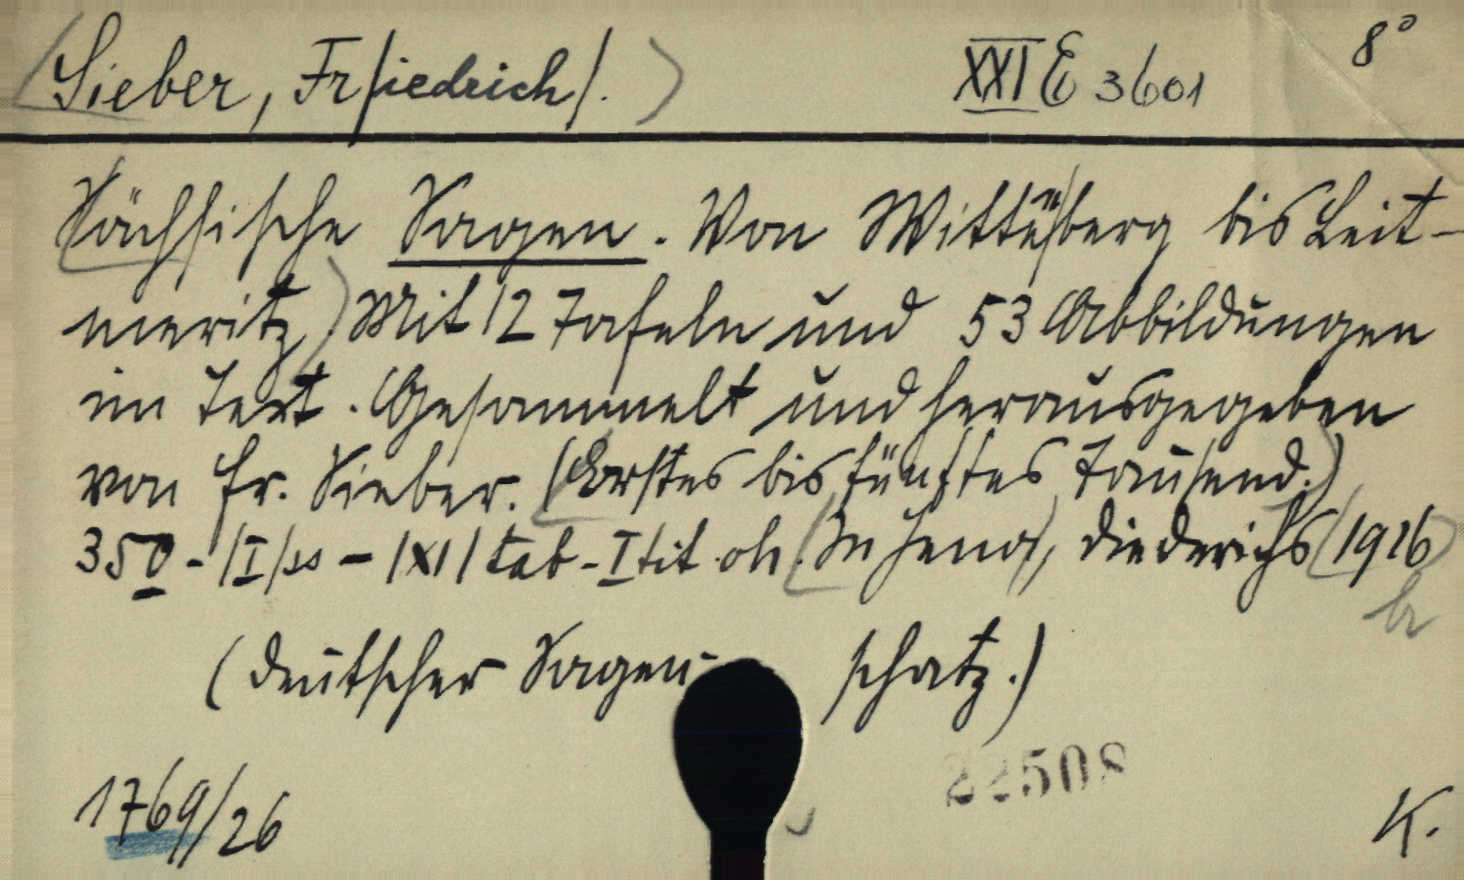 (Sieber, Fr/iedrich/.) XXI E 3601 8°
Sächsische Sagen. Von Wittenberg bis Leit-
meritz) Mit 12 Tafeln und 53 Abbildungen
im Text. Gesammelt und herausgegeben
von Fr. Sieber. (Erstes bis fünftes Tausend.)
350 - /I/ ss - /XI/ tab - I tit. oh. (In Jena), Diederichs (1926)
(Deutscher Sagen- schatz.)
22508
1769/26 K.